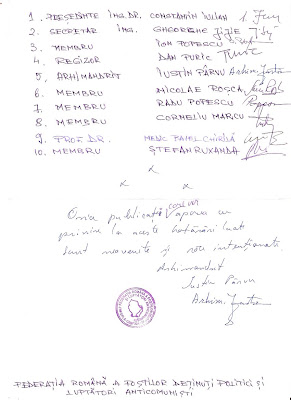 1. PREȘEDINTE ING. DR. CONSTANTIN IULIAN
2. SECRETAR ING. GHEORGHE JIJIE
3. MEMBRU ION POPESCU
4. REGIZOR DAN PURIC
5. ARHIMANDRIT IUSTIN PÂRVU
6. MEMBRU NICOLAE ROȘCA
7. MEMBRU RADU POPESCU
8. MEMBRU CORNELIU MARCU
9. PROF. DR. PAVEL CHIRILĂ
10. MEMBRU ȘTEFAN RUXANDA
x x
x
Orice publicații care vor apărea cu
privire la aceste hotărâri luate
sunt neavenite și rău intenționate
Arhimandrit
Iustin Pârvu
FEDERAȚIA ROMÂNĂ A FOȘTILOR DEȚINUȚI POLITICI ȘI
LUPTĂTORI ANTICOMUNIȘTI